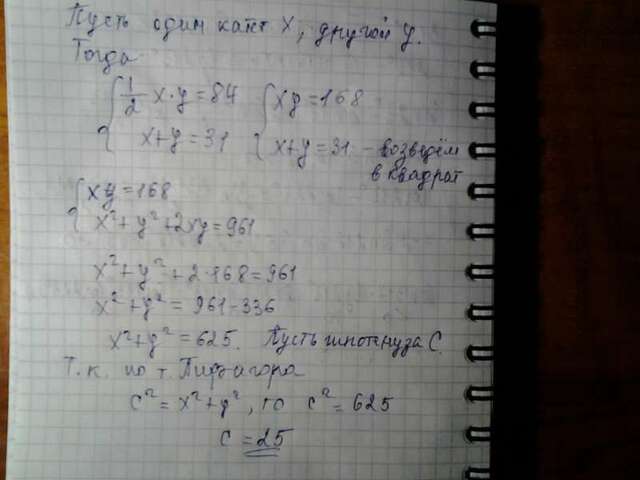 Пусть один катет x, другой y.
Тогда
{ 1/2 x·y = 84 { xy = 168
x+y = 31 x+y = 31 - возведём
в квадрат
{ xy = 168
x²+y²+2xy = 961
x²+y²+2·168 = 961
x²+y² = 961-336
x²+y² = 625. Пусть гипотенуза C.
Т.к. по т. Пифагора
c² = x²+y², то c² = 625
c = 25